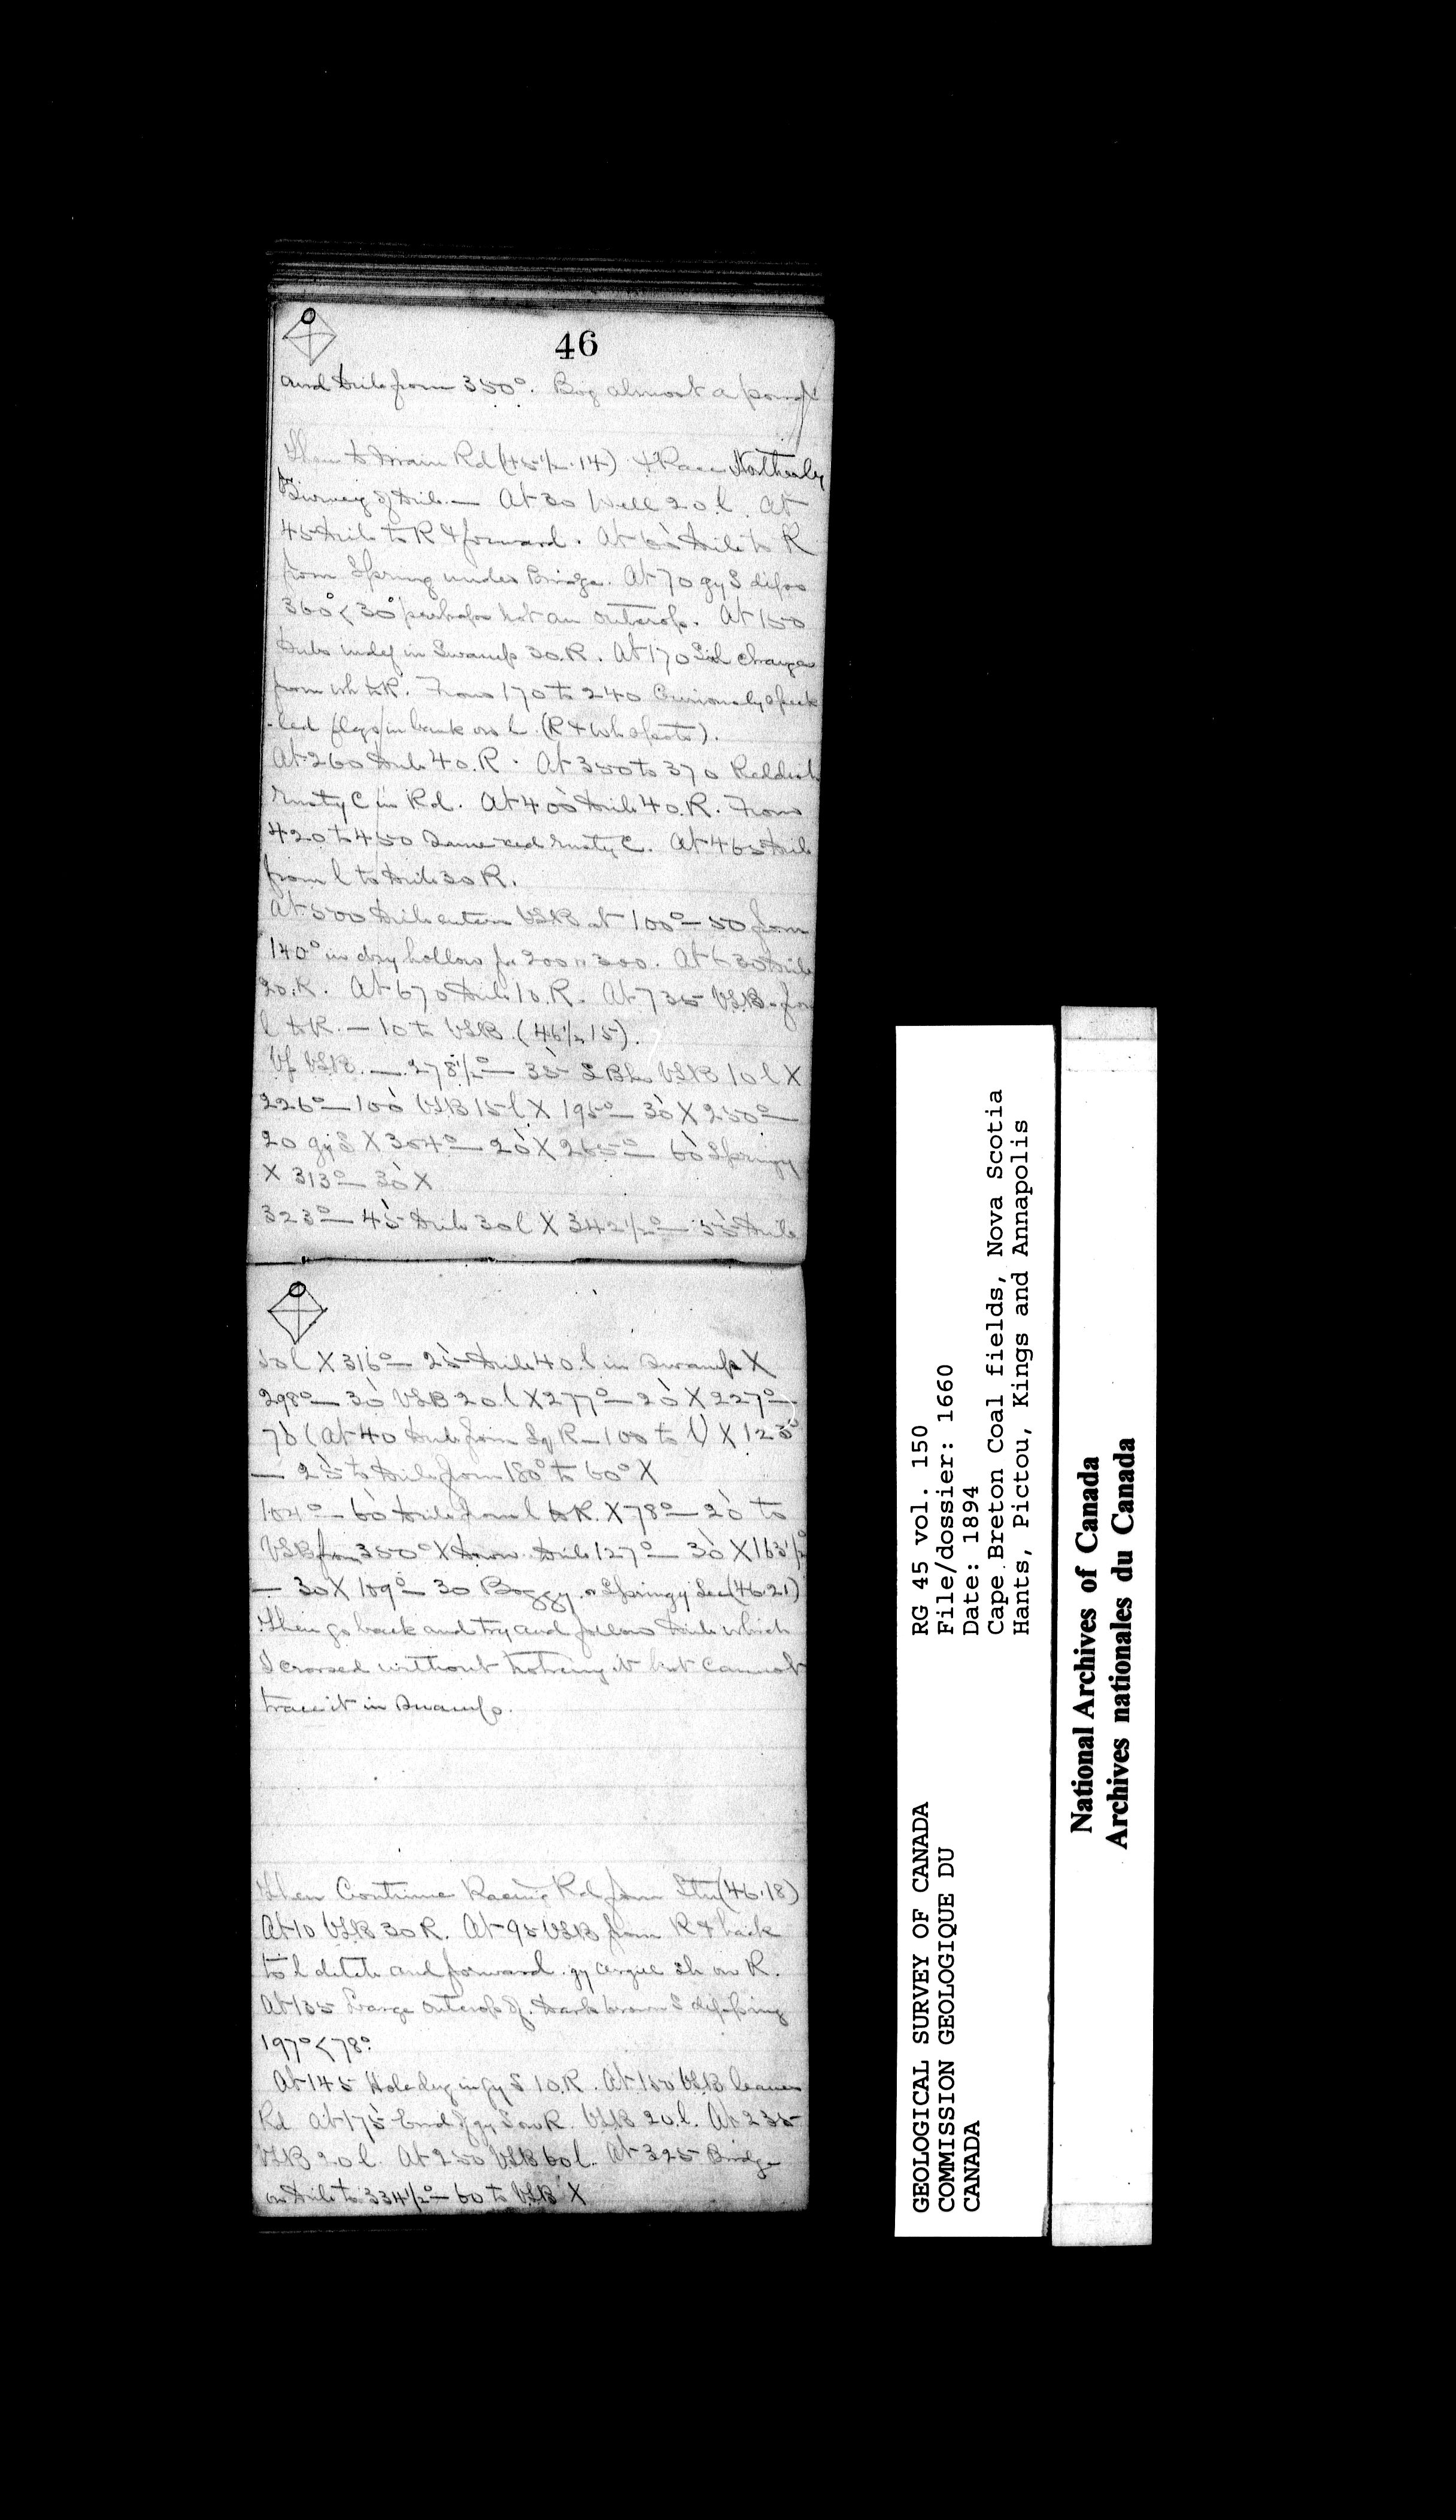 46
and Drile from 350°. Bog almost a pond
Then to Main Rd (45½.14) & Pace Northerly
Survey of Drile — At 30 Well 20.l. At
45 Drile to R & forward. At 60 Drile to R
from Spring under Bridge. At 70 gy S dips
360° < 30° perhaps not an outcrop. At 150
in Swamp 30.R. At 170 Soil changes
from wh to R. From 170 to 240 Curiously speck
-led flags in bank on l. (R & Wh spots).
At 260 Drile 40.R. At 350 to 370 Reddish
rusty C in Rd. At 400 Drile 40.R. From
420 to 450 Same red rusty C. At 465 Drile
from l to Drile 30 R.
At 500 Drile enters VSB at 100° — 50 from
140° in dry hollow for 200 or 300. At 630 Drile
20.R. At 670 Drile 10.R. At 735 VSB from
l to R. — 10 to VSB. (46½.15).
Up VSB. — 278½° — 35 VSB 10 l X
226° — 100 VSB 15 l X 195° — 30 X 250° —
20 gy S X 304° — 20 X 265° — 60 Springy
X 313° — 30 X
323° — 45 Drile 30 l X 342½° — 55 Drile
50 l X 316° — 25 Drile 40.l in Swamp X
298° — 30 VSB 20.l X 277° — 20 X 227° —
70 (At 40 Drile from R — 100 to l) X 123°
— 25 to Drile from 180° to 60° X
104° — 60 Drile from l to R. X 78° — 20 to
VSB from 350° X Down Drile 127° — 30 X 163½°
— 30 X 109° — 30 Boggy or Springy See (46.21)
Then go back and try and follow Drile which
I crossed without noticing it but cannot
trace it in Swamp.
Then Continue Pacing Rd from Stn (46.18)
At 10 VSB 30 R. At 95 VSB from R & back
to l ditch and forward. gy argill sh on R.
At 135 Large outcrop of dark brown S dipping
197° < 78°.
At 145 Hole dug in gy S 10.R. At 150 VSB leaves
Rd. At 175 End of gy S on R. VSB 20.l. At 235
VSB 20 l. At 250 VSB 60 l. At 325 Bridge
on Drile to 334½° — 60 to VSB X
GEOLOGICAL SURVEY OF CANADA
COMMISSION GEOLOGIQUE DU
CANADA
RG 45 vol. 150
File/dossier: 1660
Date: 1894
Cape Breton Coal fields, Nova Scotia
Hants, Pictou, Kings and Annapolis
National Archives of Canada
Archives nationales du Canada